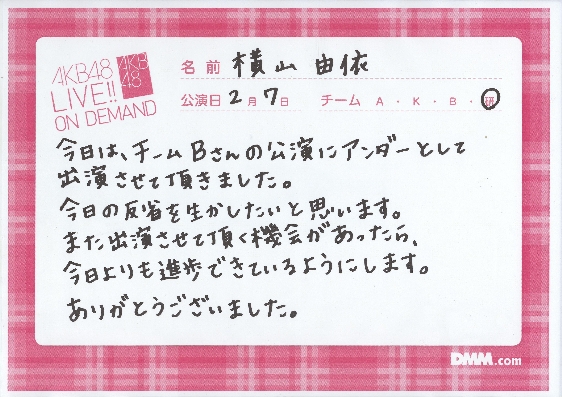 AKB48
LIVE!!
ON DEMAND
AKB
48
名前 横山由依
公演日 2月7日 チーム A・K・B・研
今日は、チームBさんの公演にアンダーとして
出演させて頂きました。
今日の反省を生かしたいと思います。
また出演させて頂く機会があったら、
今日よりも進歩できているようにします。
ありがとうございました。
DMM.com